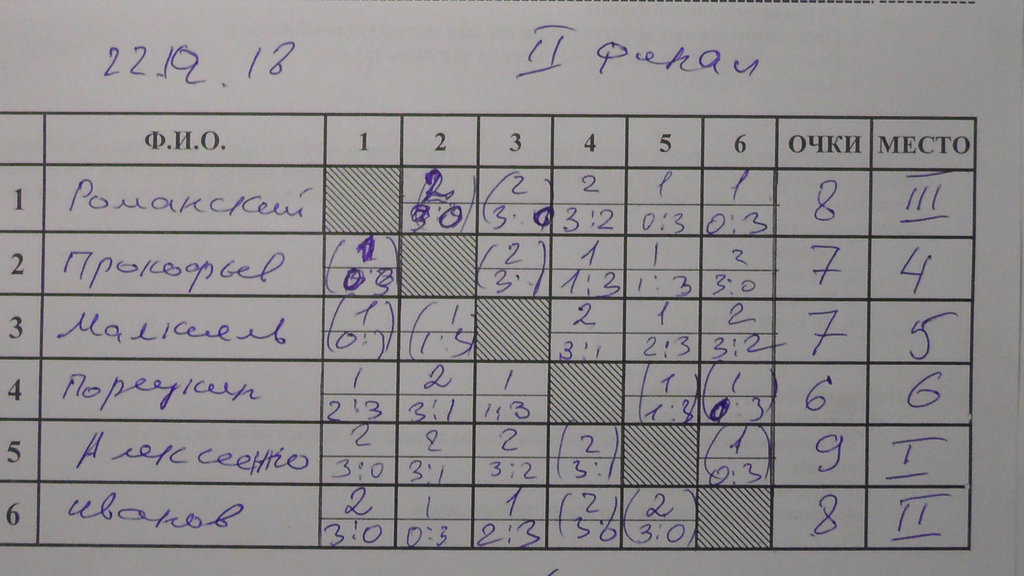 22.12.18 II финал
Ф.И.О. 1 2 3 4 5 6 ОЧКИ МЕСТО
1 Романский 2 3:0 2 3:0 2 3:2 1 0:3 1 0:3 8 III
2 Прокофьев 1 0:3 2 3:1 1 1:3 1 1:3 2 3:0 7 4
3 Малкиель 1 0:3 1 1:3 2 3:1 1 2:3 2 3:2 7 5
4 Порецкин 1 2:3 2 3:1 1 1:3 1 1:3 1 0:3 6 6
5 Алексеенко 2 3:0 2 3:1 2 3:2 2 3:1 1 0:3 9 I
6 Иванов 2 3:0 1 0:3 1 2:3 2 3:0 2 3:0 8 II